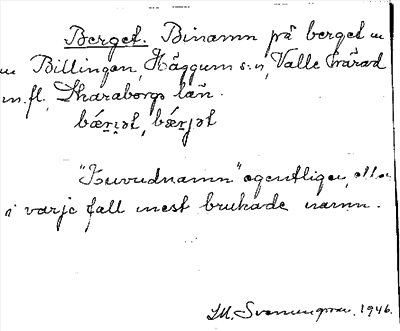 Berget. Binamn på berget
Billingen, Häggums sn, Valle härad
m. fl., Skaraborgs län.
bǽrɪ̯ət, bǽrjət
"Huvudnamn" egentligen, eller
i varje fall mest brukade namn.
1946.